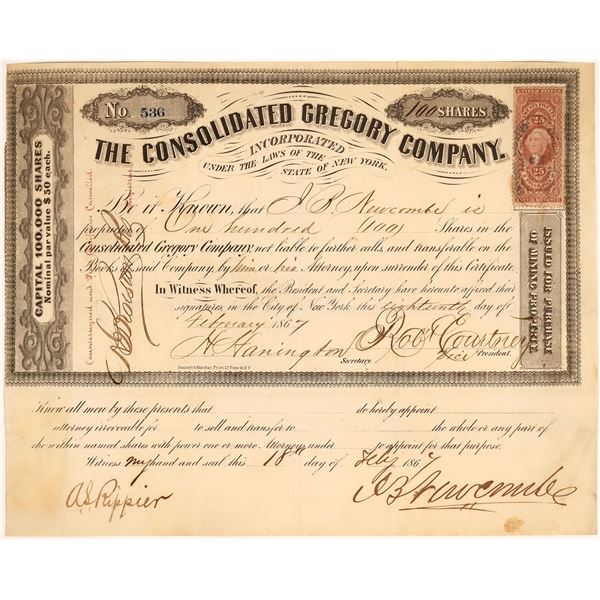 No. 536
100 SHARES.
25 25
THE CONSOLIDATED GREGORY COMPANY.
INCORPORATED
UNDER THE LAWS OF THE
STATE OF NEW YORK.
CAPITAL 100,000 SHARES
Nominal par value $50 each.
Countersigned and
Be it Known, that J. B. Newcombe is
proprietor of One hundred (100) Shares in the
Consolidated Gregory Company, not liable to further calls, and transferable on the
Books of said Company by him or his Attorney, upon surrender of this Certificate.
In Witness Whereof, the President and Secretary have hereunto affixed their
signatures, in the City of New York this eighteenth day of
February 1867
H Hanington Secretary.
Robt Courtney
Vice President.
ISSUED FOR PURCHASE
OF MINING PROPERTY.
Know all men by these presents that do hereby appoint
attorney irrevocable for to sell and transfer to the whole or any part of
the within named shares with power one or more Attorneys under to appoint for that purpose.
Witness my hand and seal this 18th day of Feby 1867
A.S. Rippier
J B Newcombe